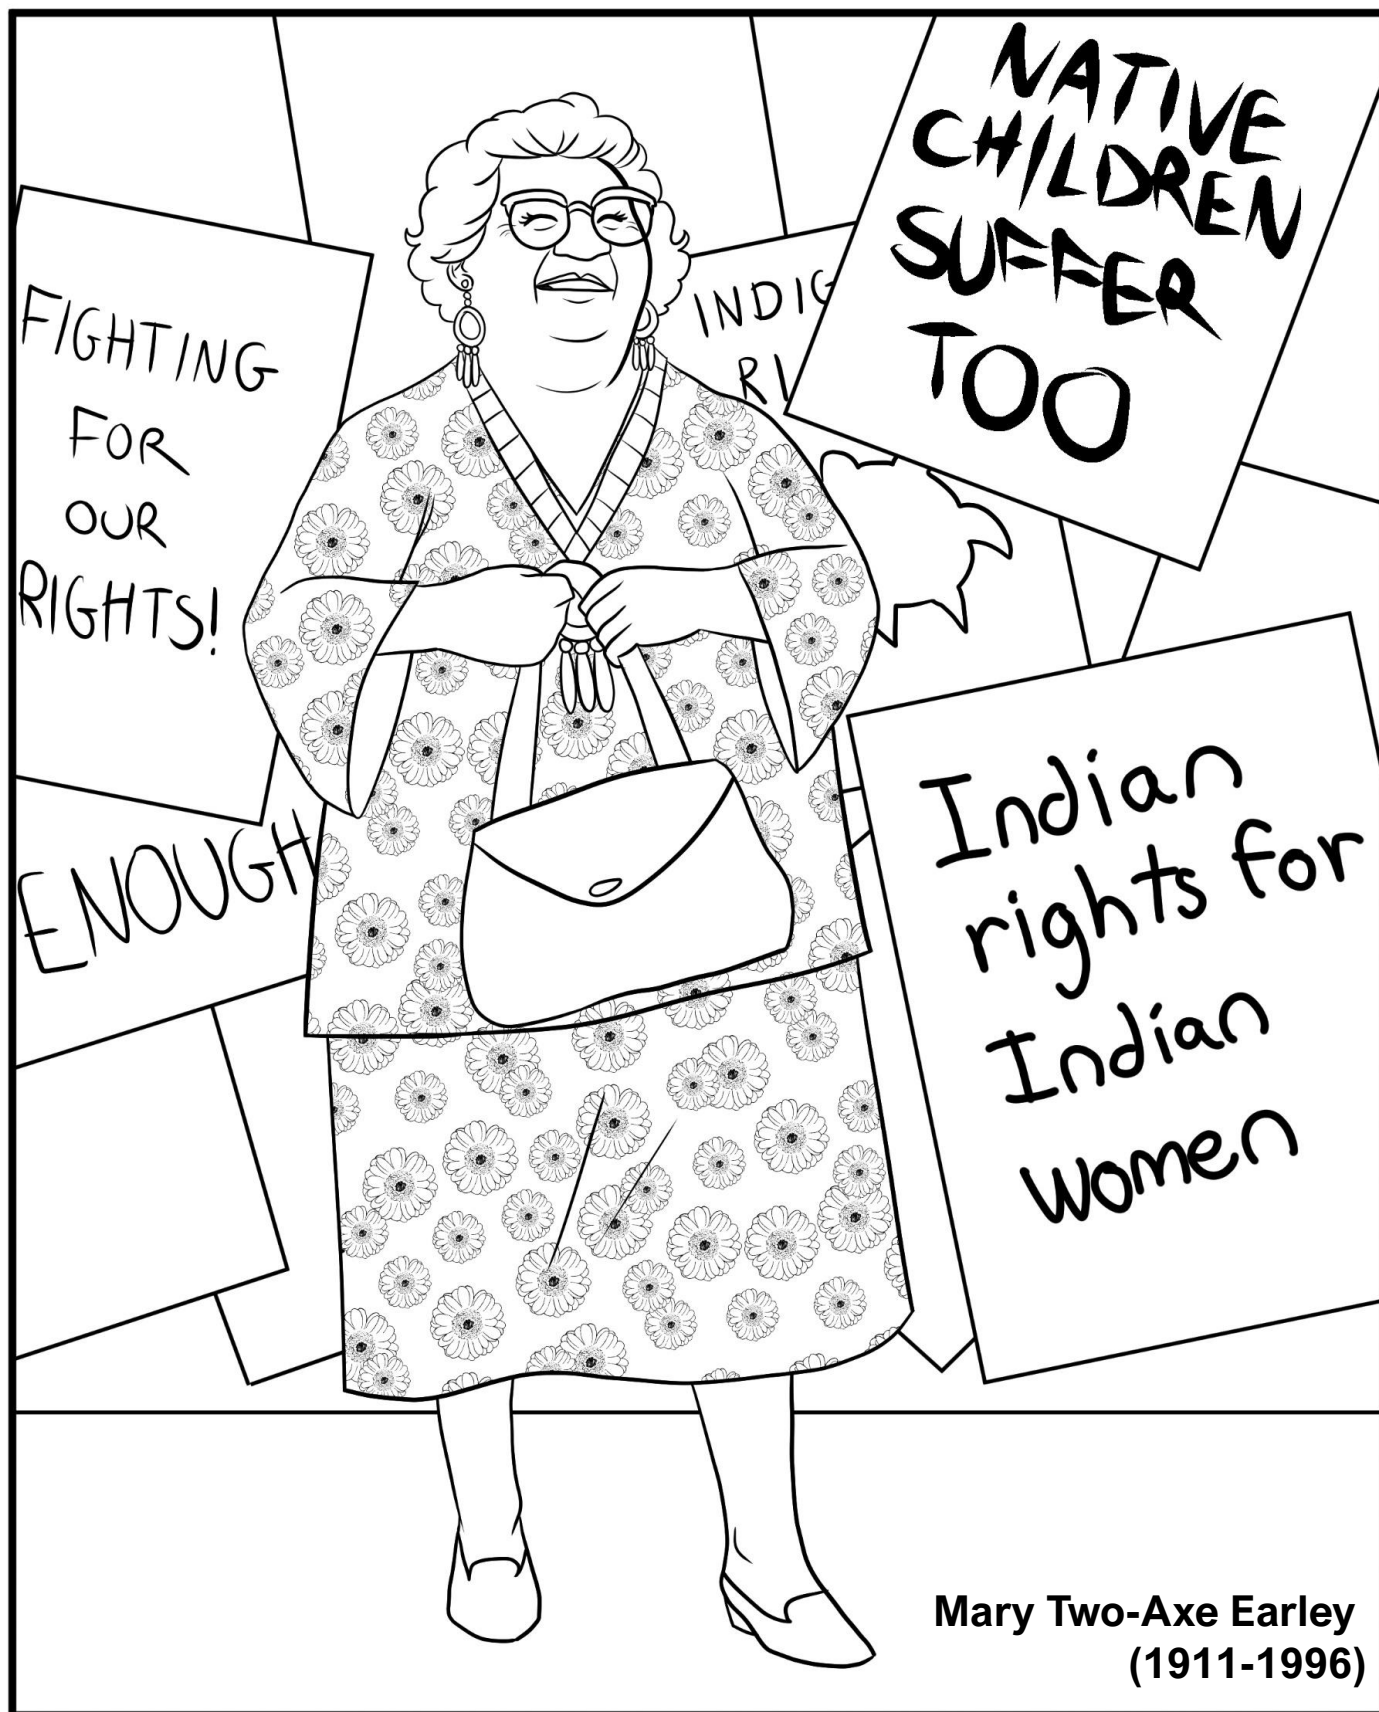 FIGHTING
FOR
OUR
RIGHTS!
ENOUGH
NATIVE
CHILDREN
SUFFER
TOO
Indian
rights for
Indian
women
Mary Two-Axe Earley
(1911-1996)